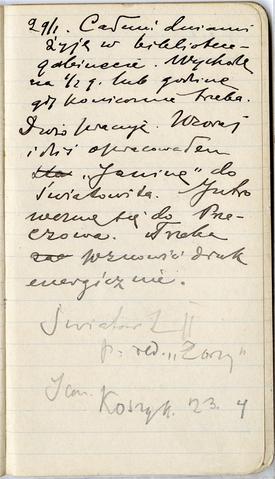 29/1. Całemi dniami
żyję w bibliotece-
gabinecie. Wychodzę
na 1/2 g. lub godzinę
gdy koniecznie trzeba.
Dużo pracuję. Wczoraj
i dziś opracowałem
"Janinę" do
Światowita. Jutro
wezmę się do Pse-
czowa. Trzeba
wznowić druk
energicznie.
Światow. II
p. red. "Zorzy"
Koszyk. 23.